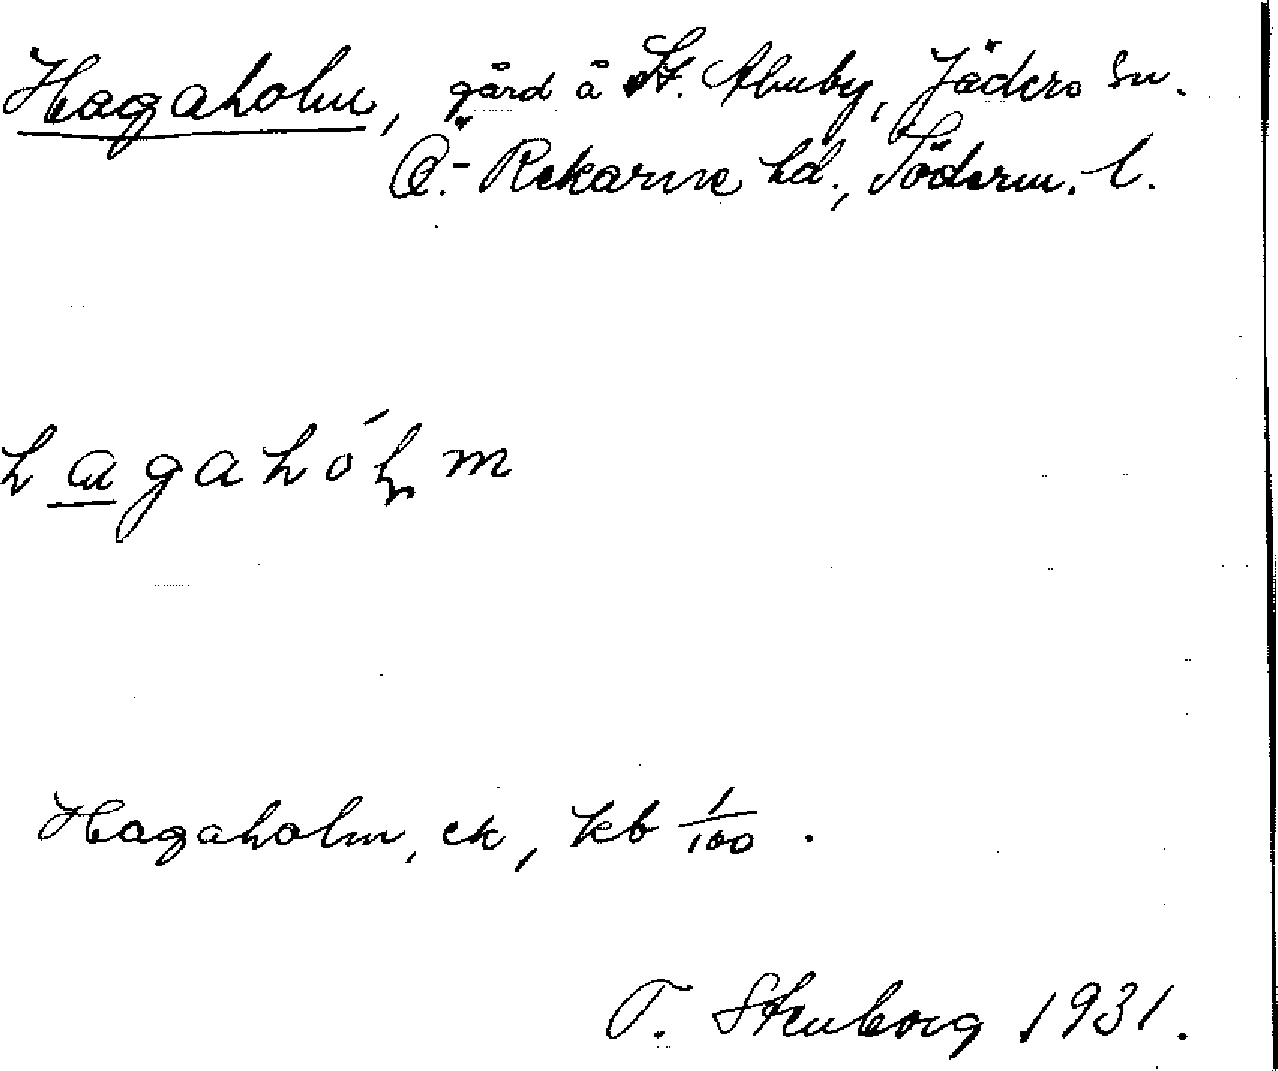 Hagaholm, gård å St. Åhuby, Jäders sn.
Ö.-Rekarne hd., Söderm. l.
hagahóḷm
Hagaholm, ek, kb 1/100.
T. Stenborg 1931.